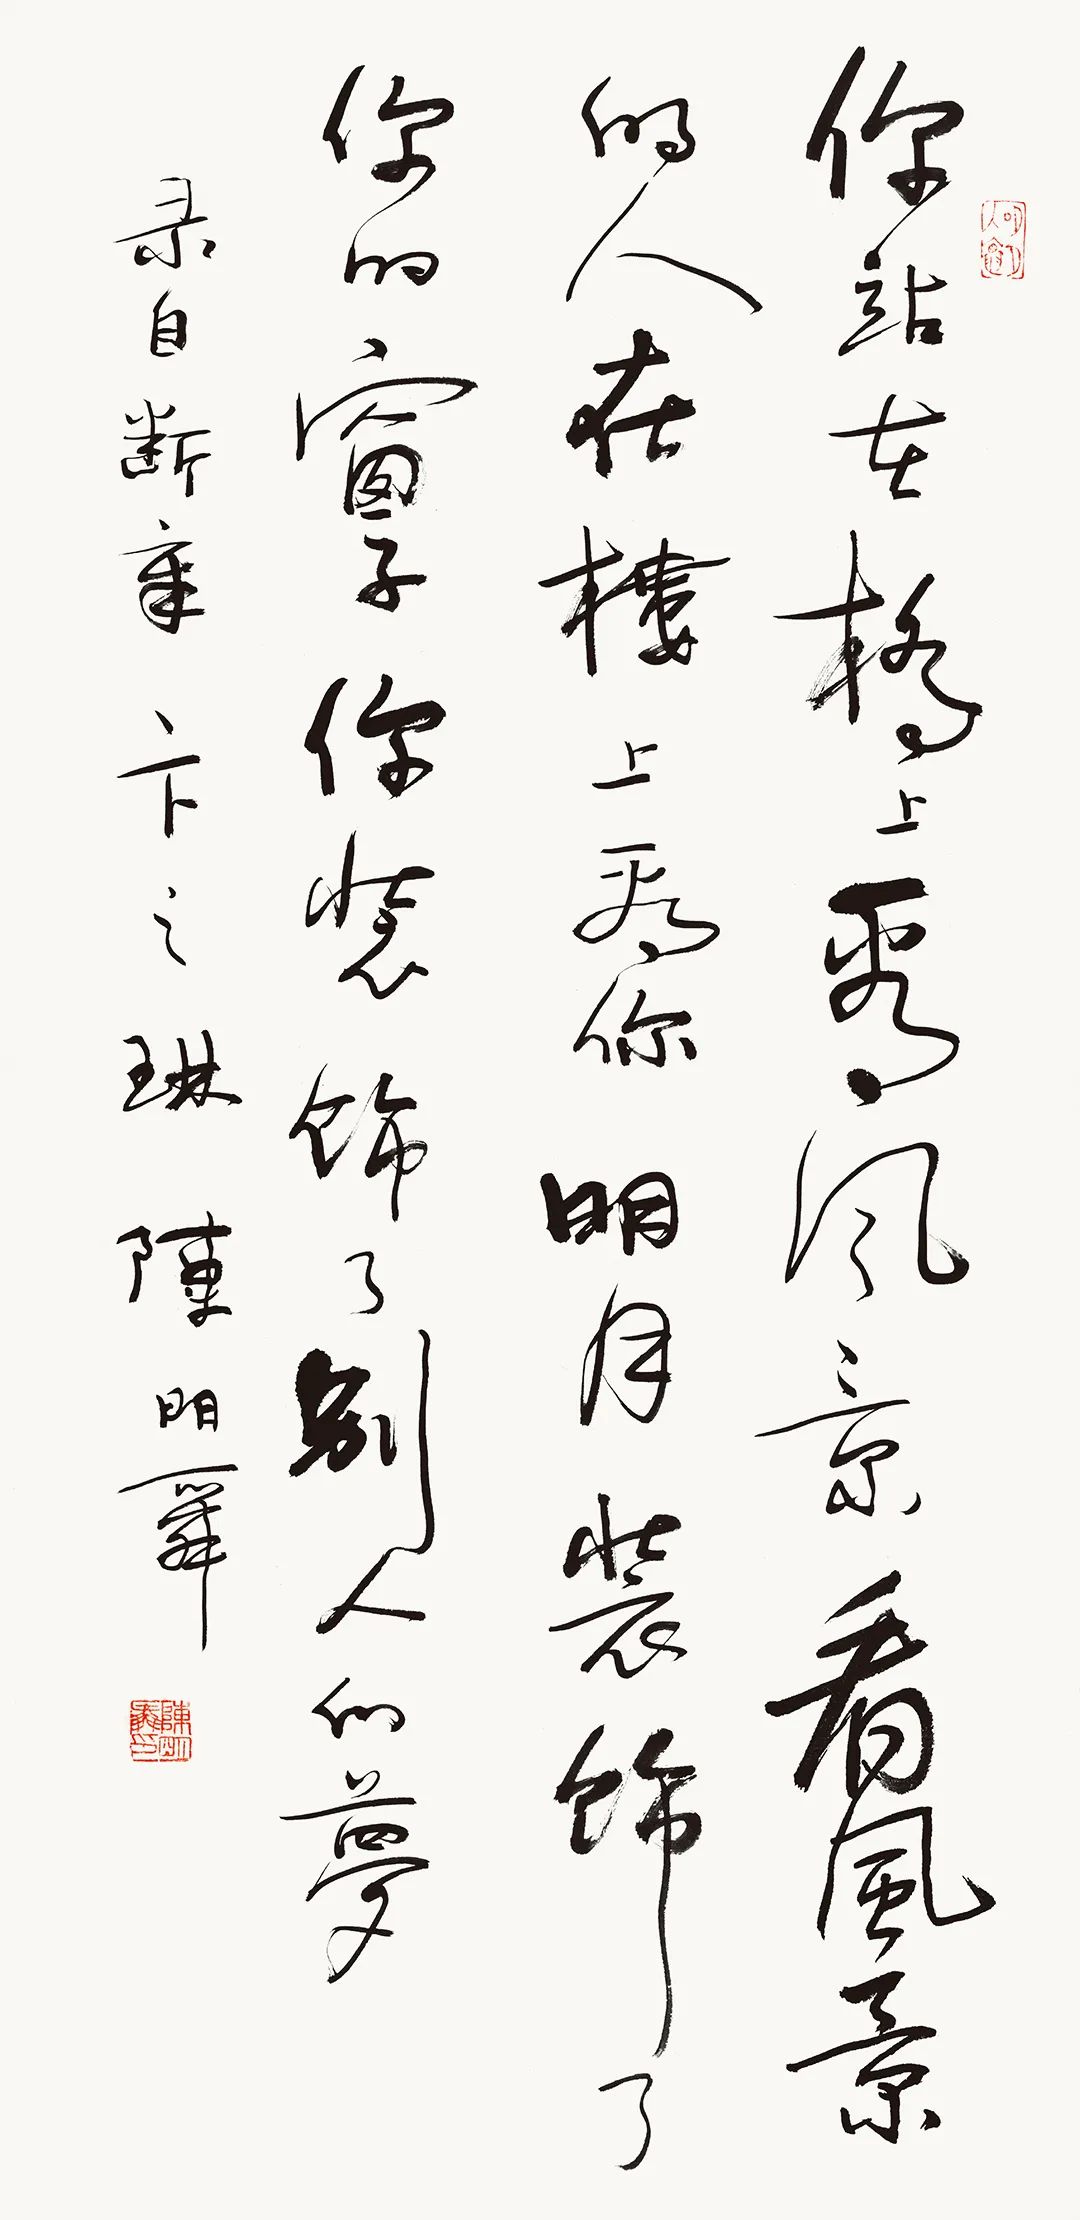 你站在橋上看风景看風景
的人在樓上看你明月裝飾了
你的窗子你裝飾了别人的夢
录自断章卞之琳陳明舞